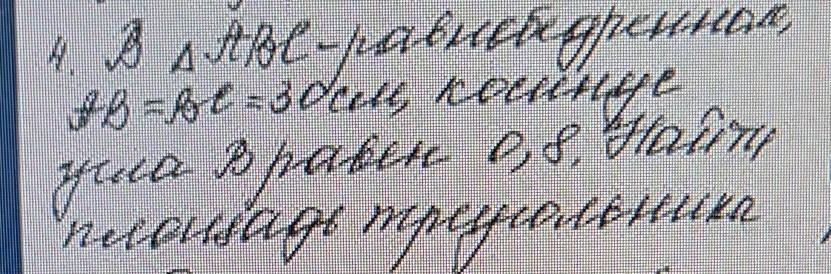 4. В △ ABC - равнобедренная,
AB = BC = 30 см, косинус
угла B равен 0,8. Найти
площадь треугольника